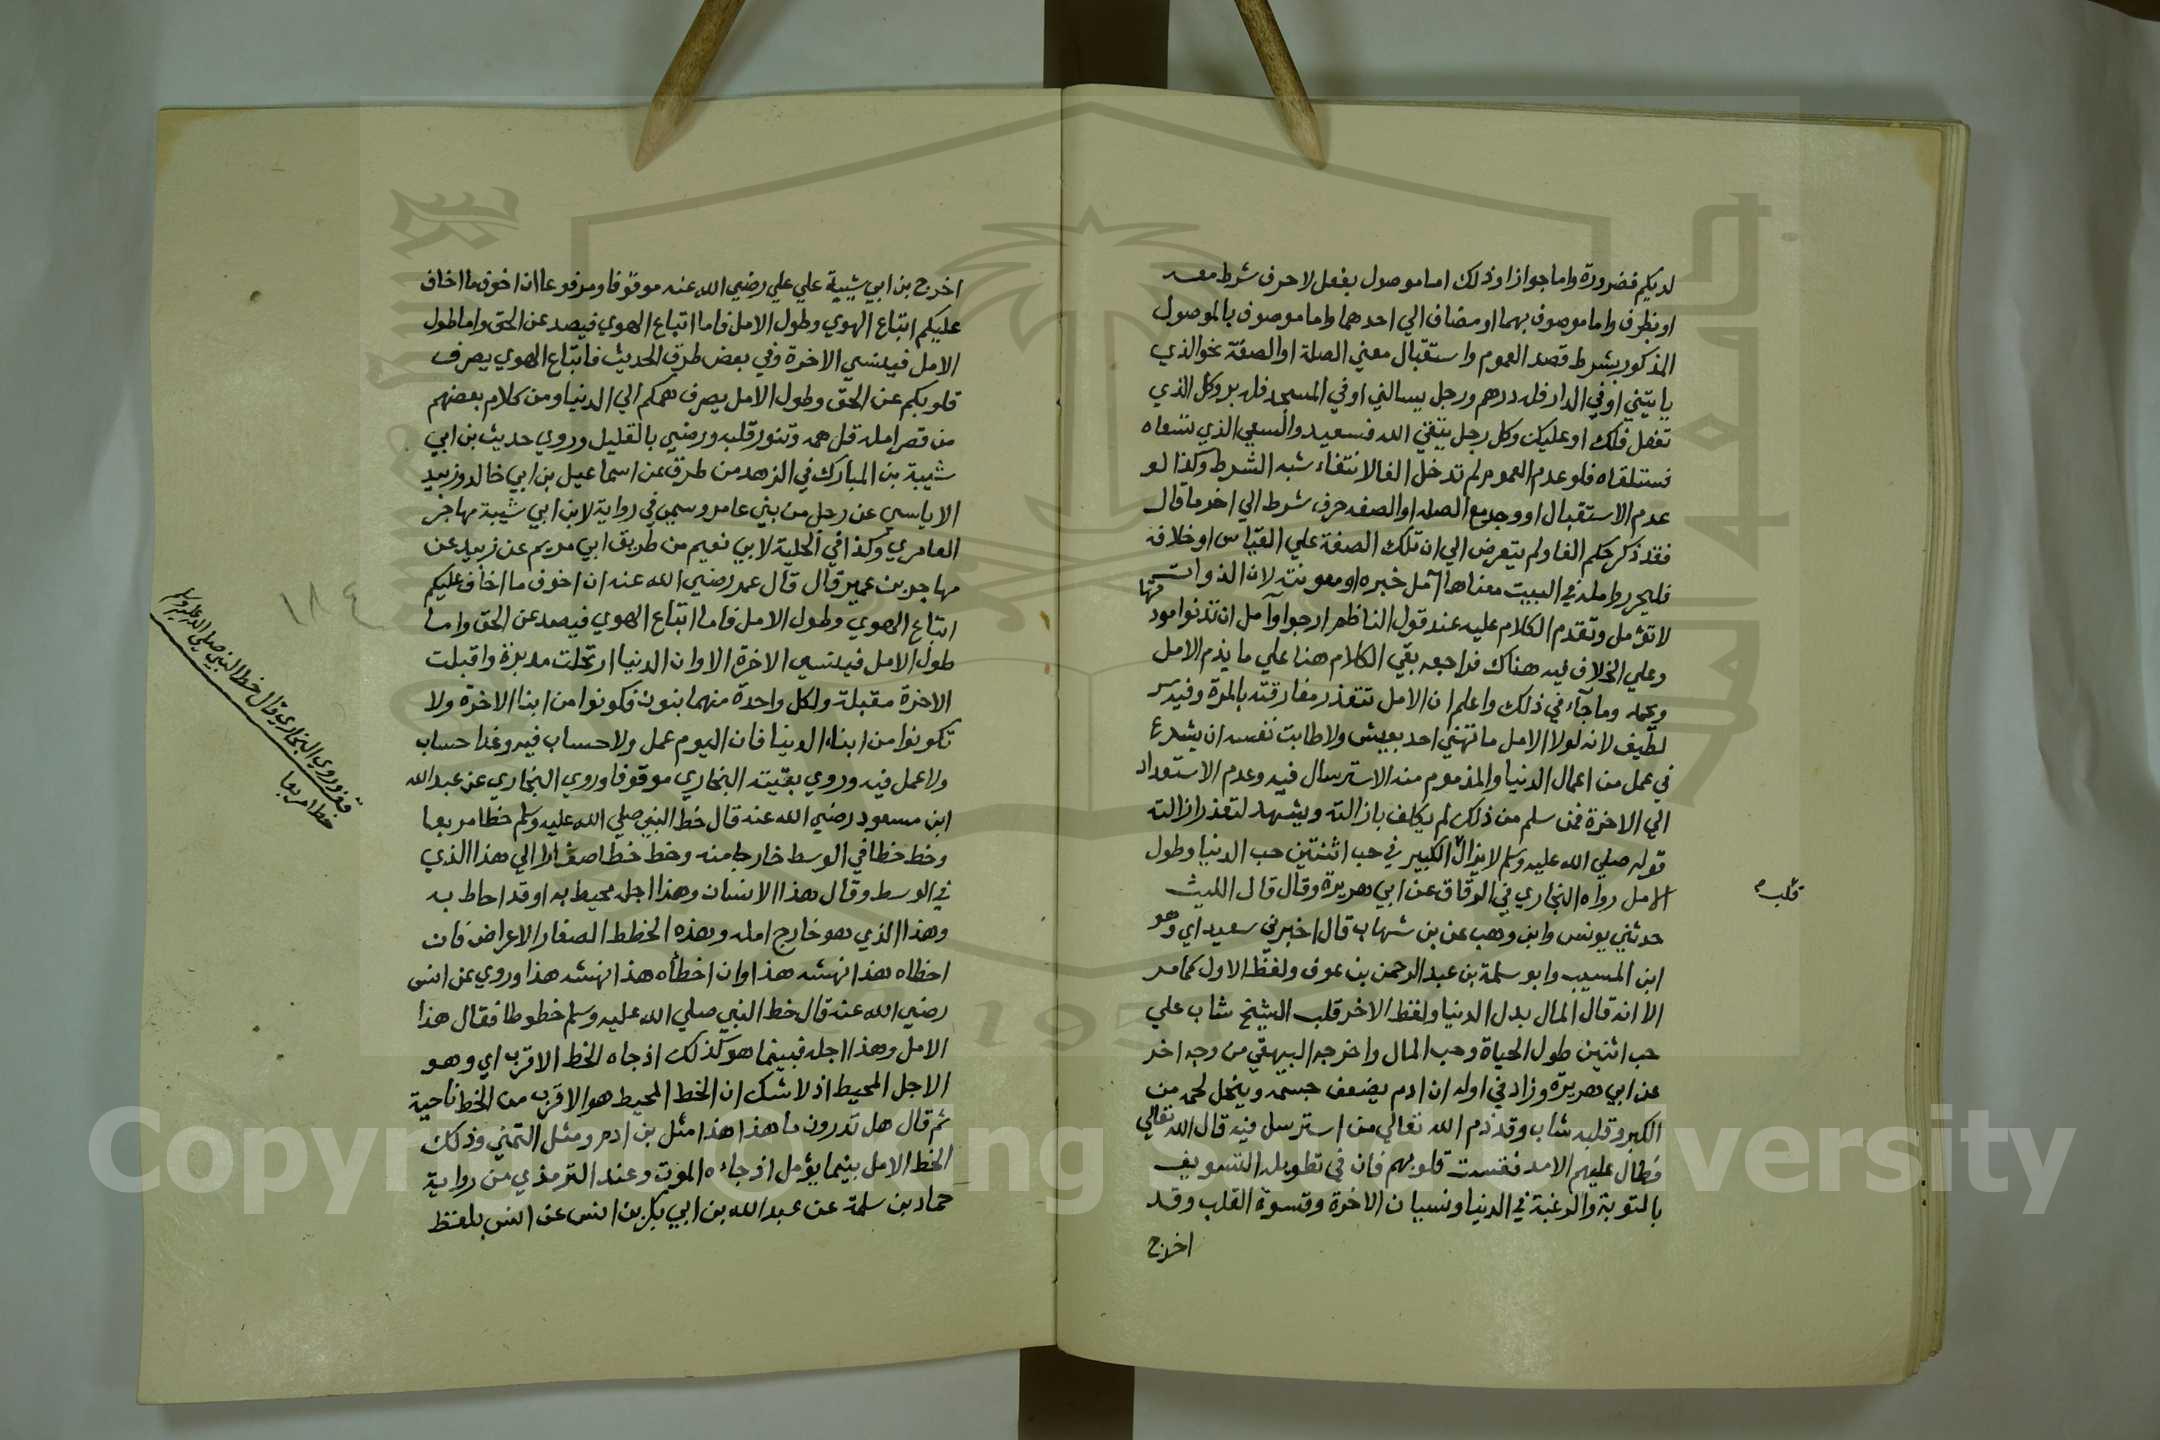 لديكم فضرورة واما جوازا وذلك اما موصول بفعل لا حرف شرط معه
او بظرف واما موصوف بهما او مضاف الي احدهما واما موصوف بالموصول
المذكور بشرط قصد العموم واستقبال معني الصلة او الصفة نحو الذي
ياتيني او في الدار فله درهم ورجل يسالني او في المسجد فله بر وكل الذي
تفعل فلك او عليك وكل رجل يتقي الله فسعيد والسعي الذي تسعاه
فستلقاه فلو عدم العموم لم تدخل الفا لانتفاء شبه الشرط وكذا لو
عدم الاستقبال او وجد مع الصله او الصفه حرف شرط الي اخر ما قال
فقد ذكر حكم الفا ولم يتعرض الي ان تلك الصفة علي القياس او خلافه
فليحرر وامله في البيت معناها آمل خيره او معونته لان الذوات
لا تؤمل وتقدم الكلام عليه عند قول الناظم ارجوا وآمل ان تدنوا مودتها
وعلي الخلاف فيه هناك فراجعه بقي الكلام هنا علي ما يذم الامل
ويحمله وما جآء في ذلك واعلم ان الامل تتعذر مفارقته بالمرة وفيه سر
لطيف لانه لولا الامل ما تهني احد بعيش ولا طابت نفسه ان يشرع
في عمل من اعمال الدنيا والمذموم منه الاسترسال فيه وعدم الاستعداد
الي الاخرة فمن سلم من ذلك لم يكلف بازالته ويشهد لتعذر ازالته
قوله صلي الله عليه وسلم لا يزال الكبير في حب اثنتين حب الدنيا وطول
الامل رواه البخاري في الرقاق عن ابي هريرة وقال قال الليث
حدثني يونس وابن وهب عن بن شهاب قال اخبرني سعيد اي وهو
ابن المسيب وابو سلمة بن عبد الرحمن بن عوف ولفظ الاول كما مر
الا انه قال المال بدل الدنيا ولفظ الاخر قلب الشيخ شاب علي
حب اثنين طول الحياة وحب المال واخرجه البيهقي من وجه اخر
عن ابي هريرة وزاد في اوله ان ادم يضعف جسمه وينحل لحمه من
الكبر وقلبه شاب وقد ذم الله تعالي من استرسل فيه قال الله تعالي
فطال عليهم الامد فقست قلوبهم فان في تطويله التسويف
بالتوبة والرغبة في الدنيا ونسيان الاخرة وقسوة القلب وقد
اخرج
قلب
اخرج بن ابي شيبة علي علي رضي الله عنه موقوفا ومرفوعا ان اخوف ما اخاف
عليكم اتباع الهوي وطول الامل فاما اتباع الهوي فيصد عن الحق واما طول
الامل فينسي الاخرة وفي بعض طرق الحديث فاتباع الهوي يصرف
قلوبكم عن الحق وطول الامل يصرف هممكم الي الدنيا ومن كلام بعضهم
من قصر امله قل همه وتنور قلبه ورضي بالقليل وروي حديث بن ابي
شيبة بن المبارك في الزهد من طرق عن اسماعيل بن ابي خالد وزبيد
الاياسي عن رجل من بني عامر وسمي في رواية لابن ابي شيبة مهاجر
العامري وكذا في الحلية لابي نعيم من طريق ابي مريم عن زبيد عن
مهاجر بن عمير قال قال عمر رضي الله عنه ان اخوف ما اخاف عليكم
اتباع الهوي وطول الامل فاما اتباع الهوي فيصد عن الحق واما
طول الامل فينسي الاخرة الا وان الدنيا ارتحلت مدبرة واقبلت
الاخرة مقبلة ولكل واحدة منهما بنون فكونوا من ابنا الاخرة ولا
تكونوا من ابناء الدنيا فان اليوم عمل ولا حساب فيه وغدا حساب
ولا عمل فيه وروي بقيته البخاري موقوفا وروي البخاري عن عبد الله
ابن مسعود رضي الله عنه قال خط النبي صلي الله عليه وسلم خطا مربعا
وخط خطا في الوسط خارجا منه وخط خططا صغارا الي هذا الذي
في الوسط وقال هذا الانسان وهذا اجله محيط به او قد احاط به
وهذا الذي هو خارج امله وهذه الخطط الصغار الاعراض فان
اخطاه هذا نهشه هذا وان اخطأه هذا نهشه هذا وروي عن انس
رضي الله عنه قال خط النبي صلي الله عليه وسلم خطوطا فقال هذا
الامل وهذا اجله فبينما هو كذلك اذ جاه الخط الاقرب اي وهو
الاجل المحيط اذ لا شك ان الخط المحيط هو الاقرب من الخط ناحية
ثم قال هل تدرون ما هذا هذا مثل بن ادم ومثل التمني وذلك
الخط الامل بينما يؤمل اذ جاءه الموت وعند الترمذي من رواية
حماد بن سلمة عن عبد الله بن ابي بكر بن انس عن انس بلفظ
١٨٤
قوله وروي البخاري قال خط النبي صلي الله عليه وسلم
خطا مربعا
Copyright © King Saud University
1957